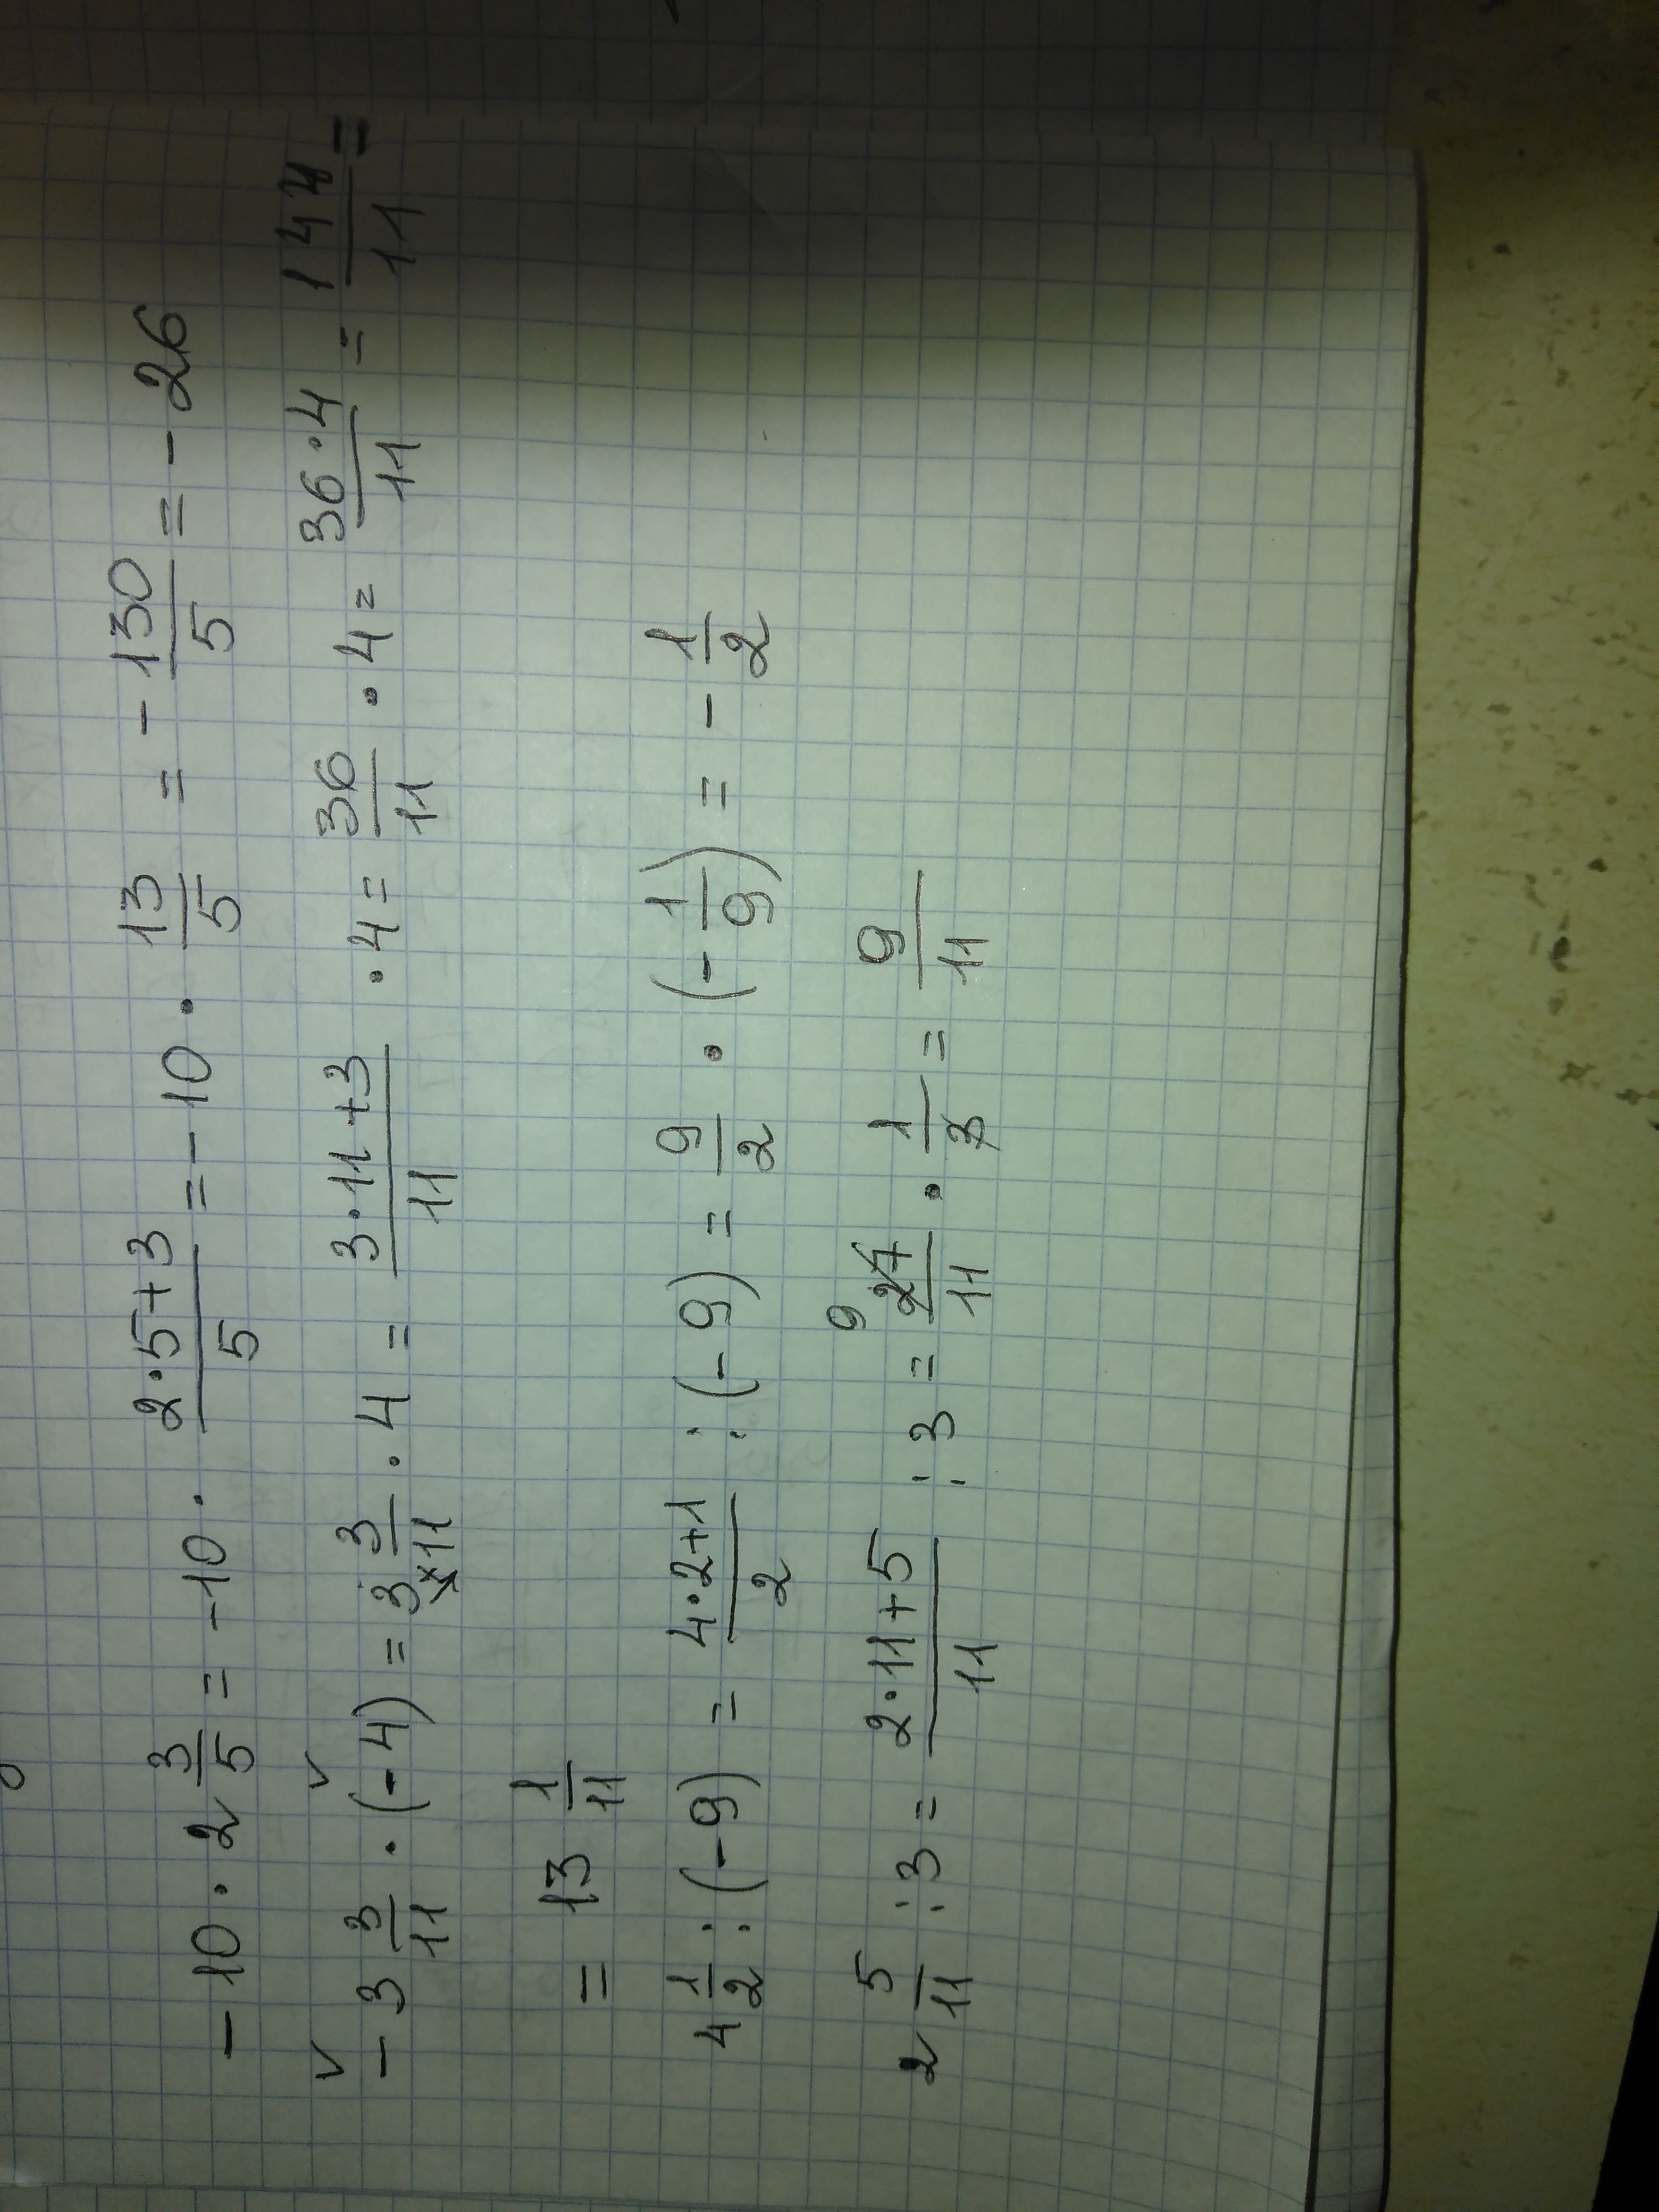 - 10 · 2 3/5 = -10 · (2·5+3)/5 = - 10 · 13/5 = - 130/5 = - 26
- 3 3/11 · (-4) = 3 3/11 · 4 = (3·11+3)/11 · 4 = 36/11 · 4 = (36·4)/11 = 144/11 =
= 13 1/11
4 1/2 : (-9) = (4·2+1)/2 : (-9) = 9/2 · (-1/9) = - 1/2
2 5/11 : 3 = (2·11+5)/11 : 3 = 9 27/11 · 1/3 = 9/11